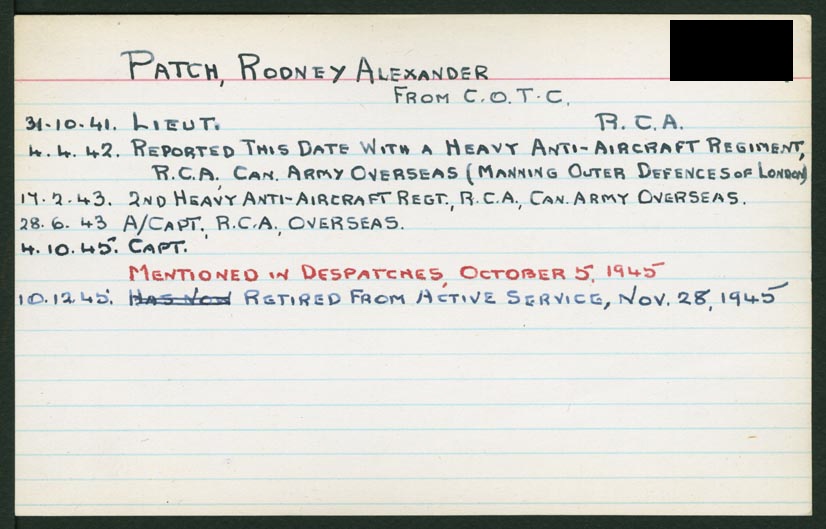 PATCH, RODNEY ALEXANDER
FROM C.O.T.C.
31-10-41. LIEUT. R.C.A.
4.4.42. REPORTED THIS DATE WITH A HEAVY ANTI-AIRCRAFT REGIMENT,
R.C.A. CAN. ARMY OVERSEAS (MANNING OUTER DEFENCES OF LONDON)
17.2.43. 2ND HEAVY ANTI-AIRCRAFT REGT., R.C.A., CAN. ARMY OVERSEAS.
28.6.43 A/CAPT., R.C.A., OVERSEAS.
4.10.45. CAPT.
MENTIONED IN DESPATCHES, OCTOBER 5, 1945
10.12.45. HAS NOW RETIRED FROM ACTIVE SERVICE, NOV. 28, 1945